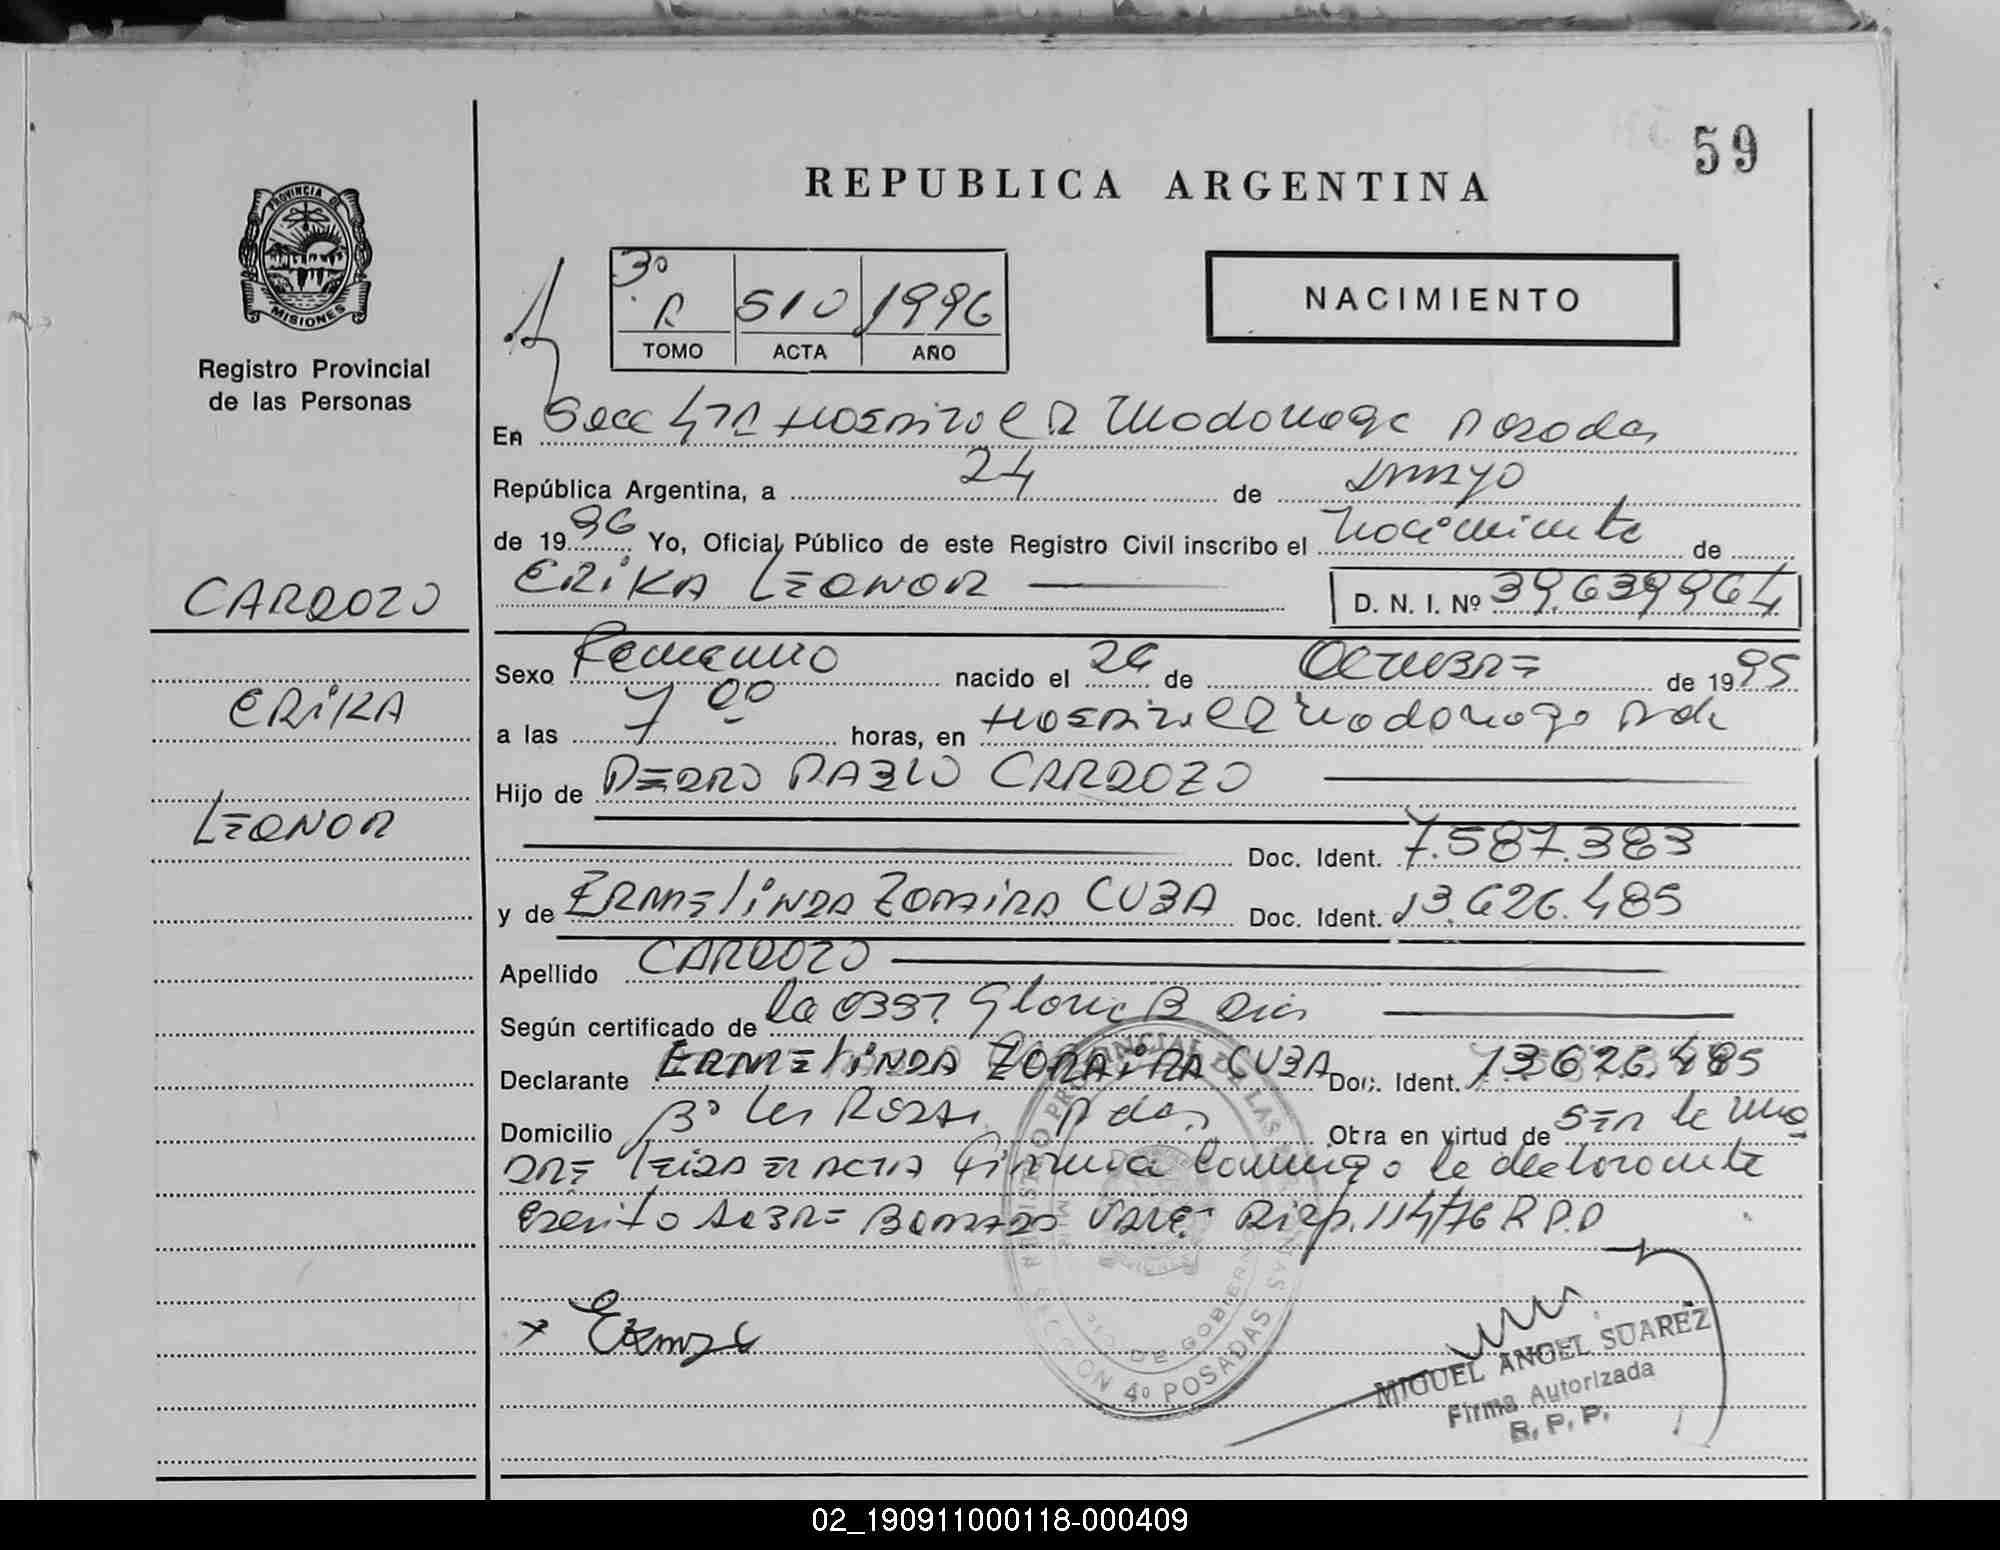 59
REPUBLICA ARGENTINA
PROVINCIA DE
MISIONES
Registro Provincial
de las Personas
3º
A 510 1996
TOMO ACTA AÑO
NACIMIENTO
En Secc 4ta Hospital R Madariaga Posadas
República Argentina, a 24 de Mayo
de 1996 Yo, Oficial Público de este Registro Civil inscribo el Nacimiento de
ERIKA LEONOR
D. N. I. Nº 39.639964
CARDOZO
ERIKA
LEONOR
Sexo Femenino nacido el 26 de Octubre de 1995
a las 7 00 horas, en Hospital R Madariaga Pdas
Hijo de PEDRO PABLO CARDOZO
Doc. Ident. 7.587.383
y de ERMELINDA ZORAIRA CUBA Doc. Ident. 13.626.485
Apellido CARDOZO
Según certificado de la Obst. Gloria B
Declarante ERMELINDA ZORAIRA CUBA Doc. Ident. 13.626.485
Domicilio Bº Las Rosas Pdas Otra en virtud de ser la ma
dre leida el acta firma conmigo la declarante
escrito sobre borrado vale. Disp. 114/76 R P.P
REGISTRO PROVINCIAL DE LAS PERSONAS
MINI CIO DE GOBIERNO
SECCION 4º POSADAS
MIGUEL ANGEL SUAREZ
Firma Autorizada
R. P. P.
02_190911000118-000409